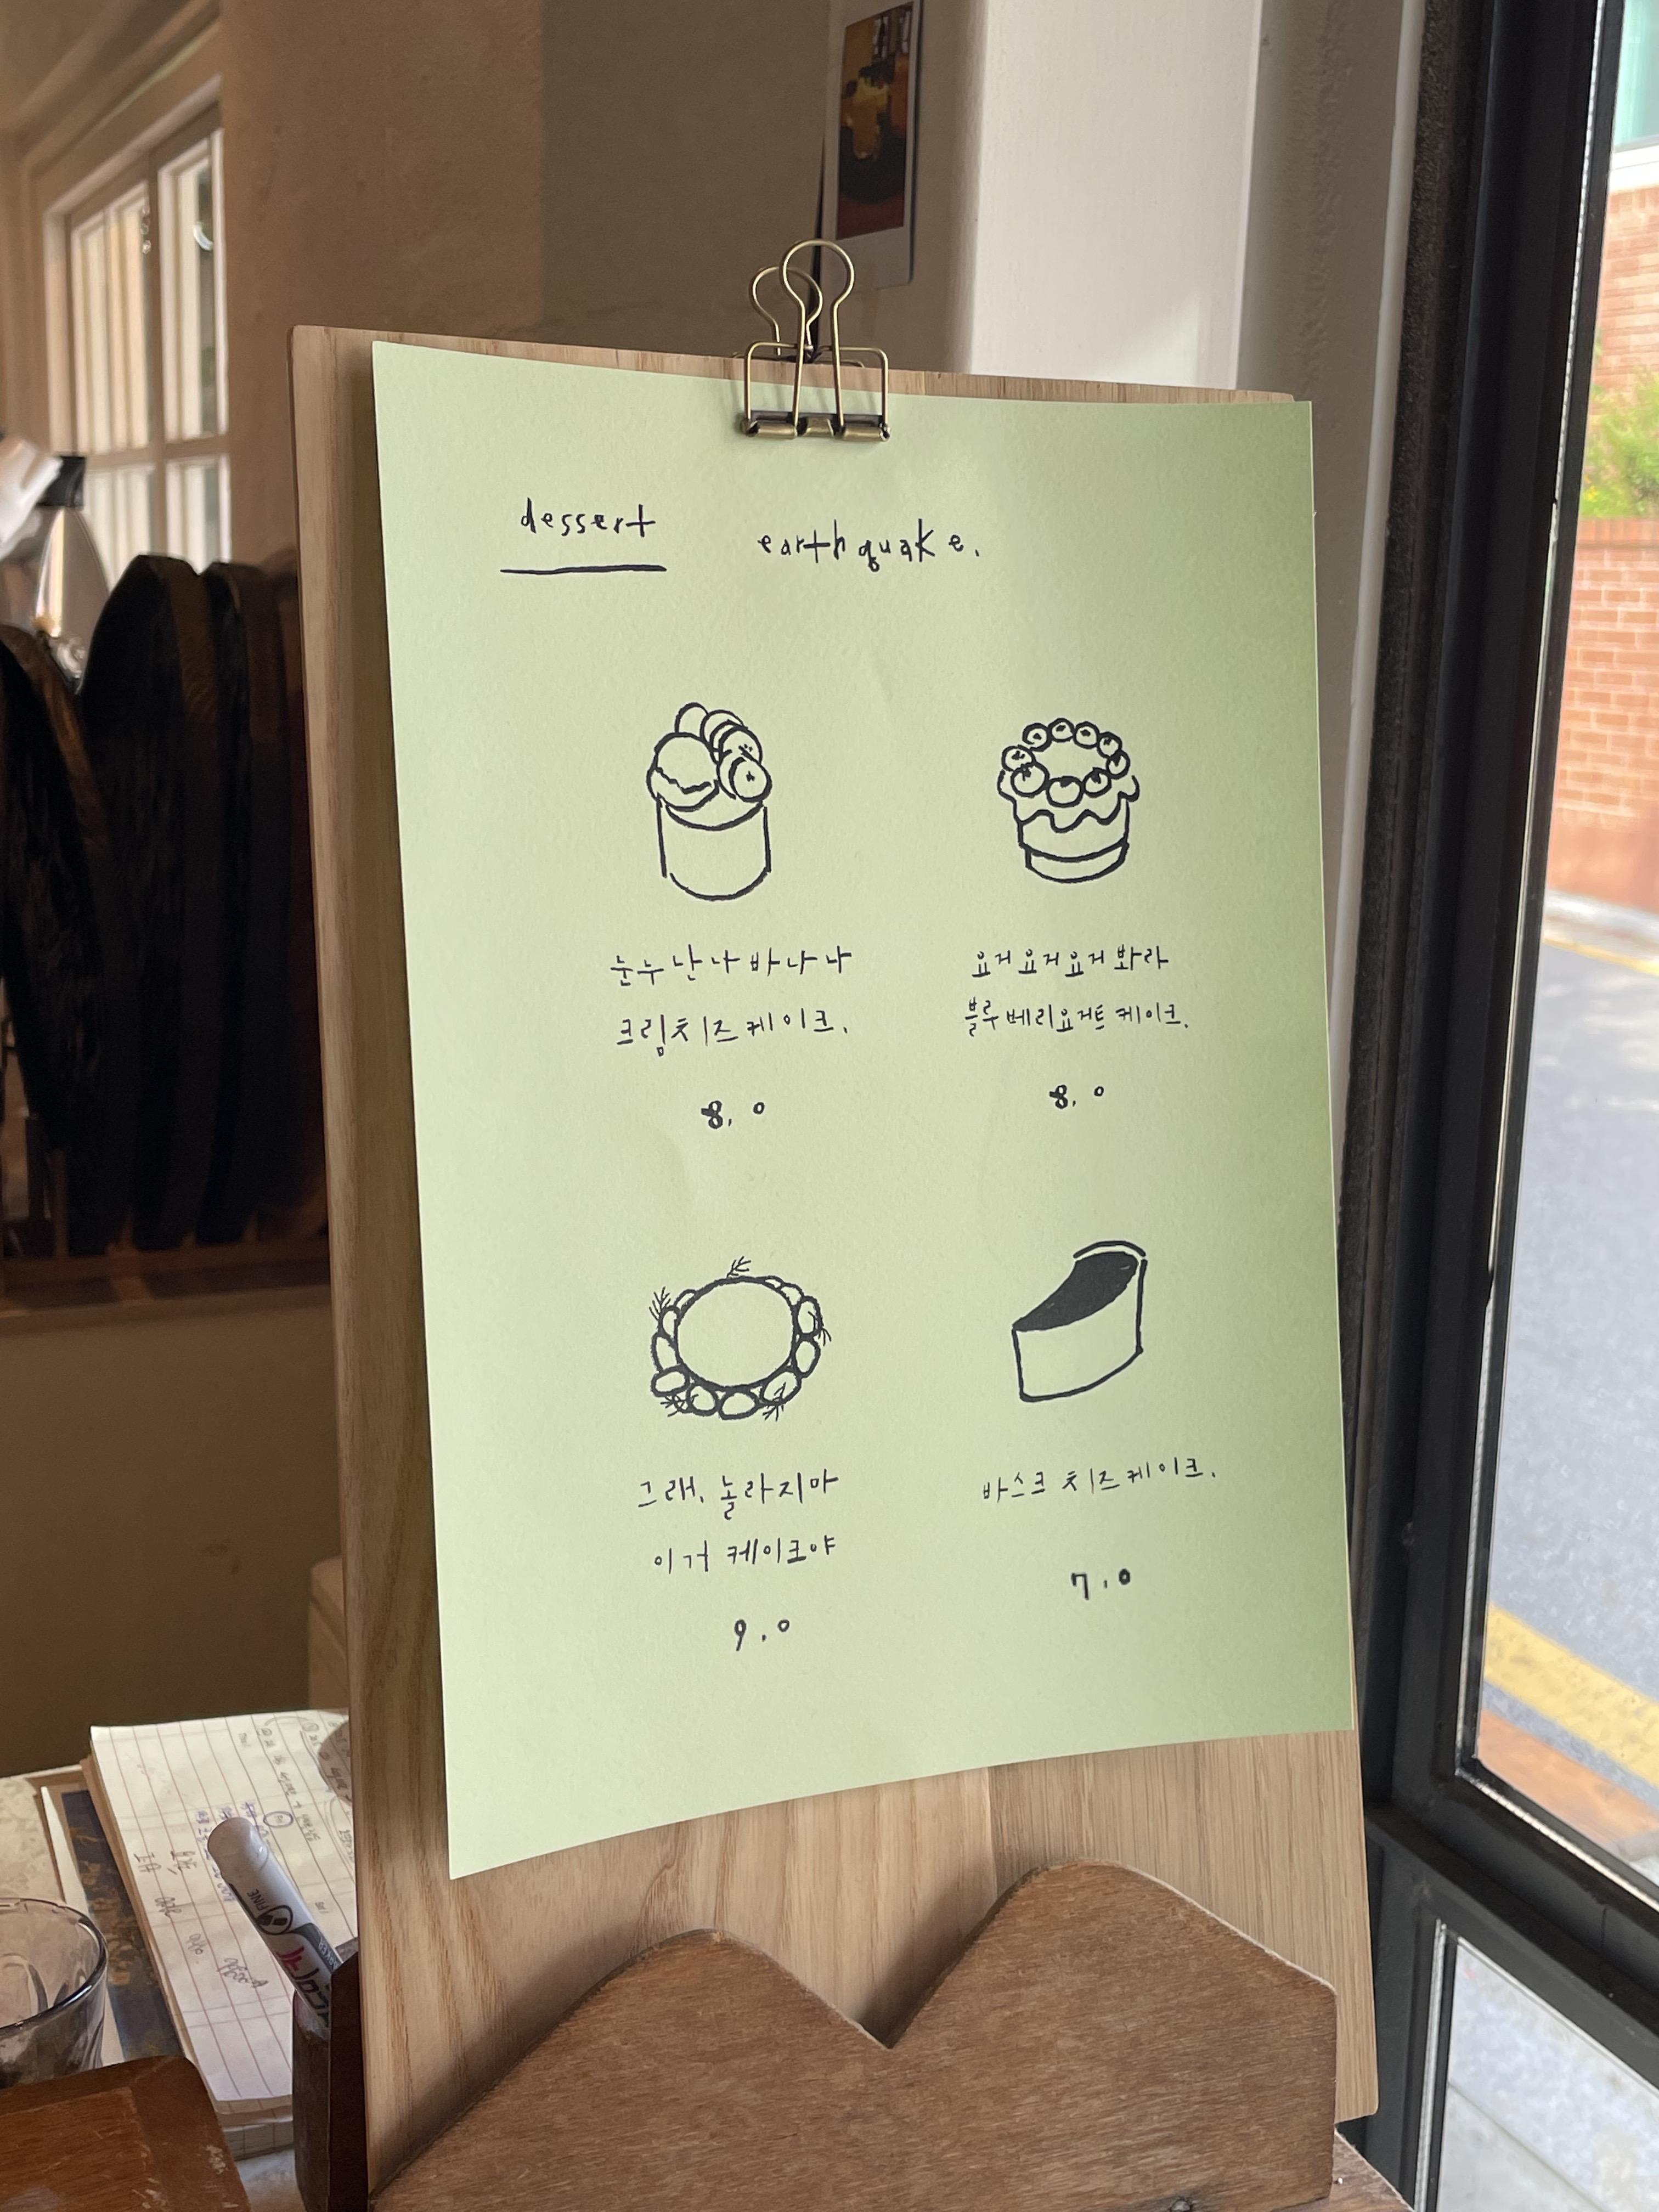 dessert
earthquake.
눈누난나바나나
크림치즈케이크.
8.0
요거요거요거봐라
블루베리요거트케이크.
8.0
그래, 놀라지마
이거 케이크야
9.0
바스크 치즈케이크.
7.0
FINE